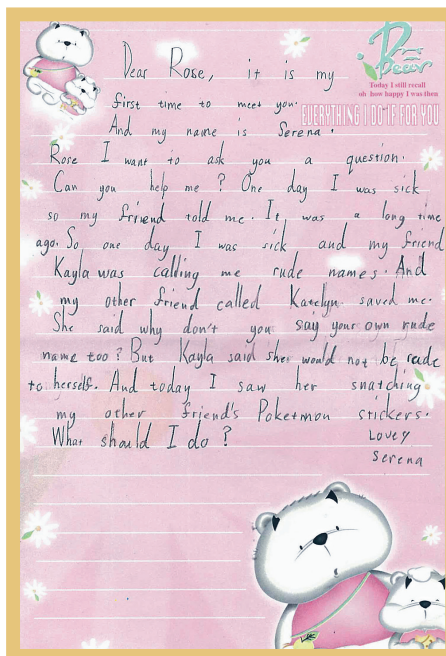 Dr. Bear
Today I still recall
oh how happy I was then
EVERYTHING I DO IF FOR YOU
Dear Rose, it is my
first time to meet you.
And my name is Serena.
Rose I want to ask you a question.
Can you help me? One day I was sick
so my friend told me. It was a long time
ago. So one day I was sick and my friend
Kayla was calling me rude names. And
my other friend called Katelyn saved me.
She said why don't you say your own rude
name too? But Kayla said she would not be rude
to herself. And today I saw her snatching
my other friend's Poketmon stickers.
What should I do?
Lovey
Serena